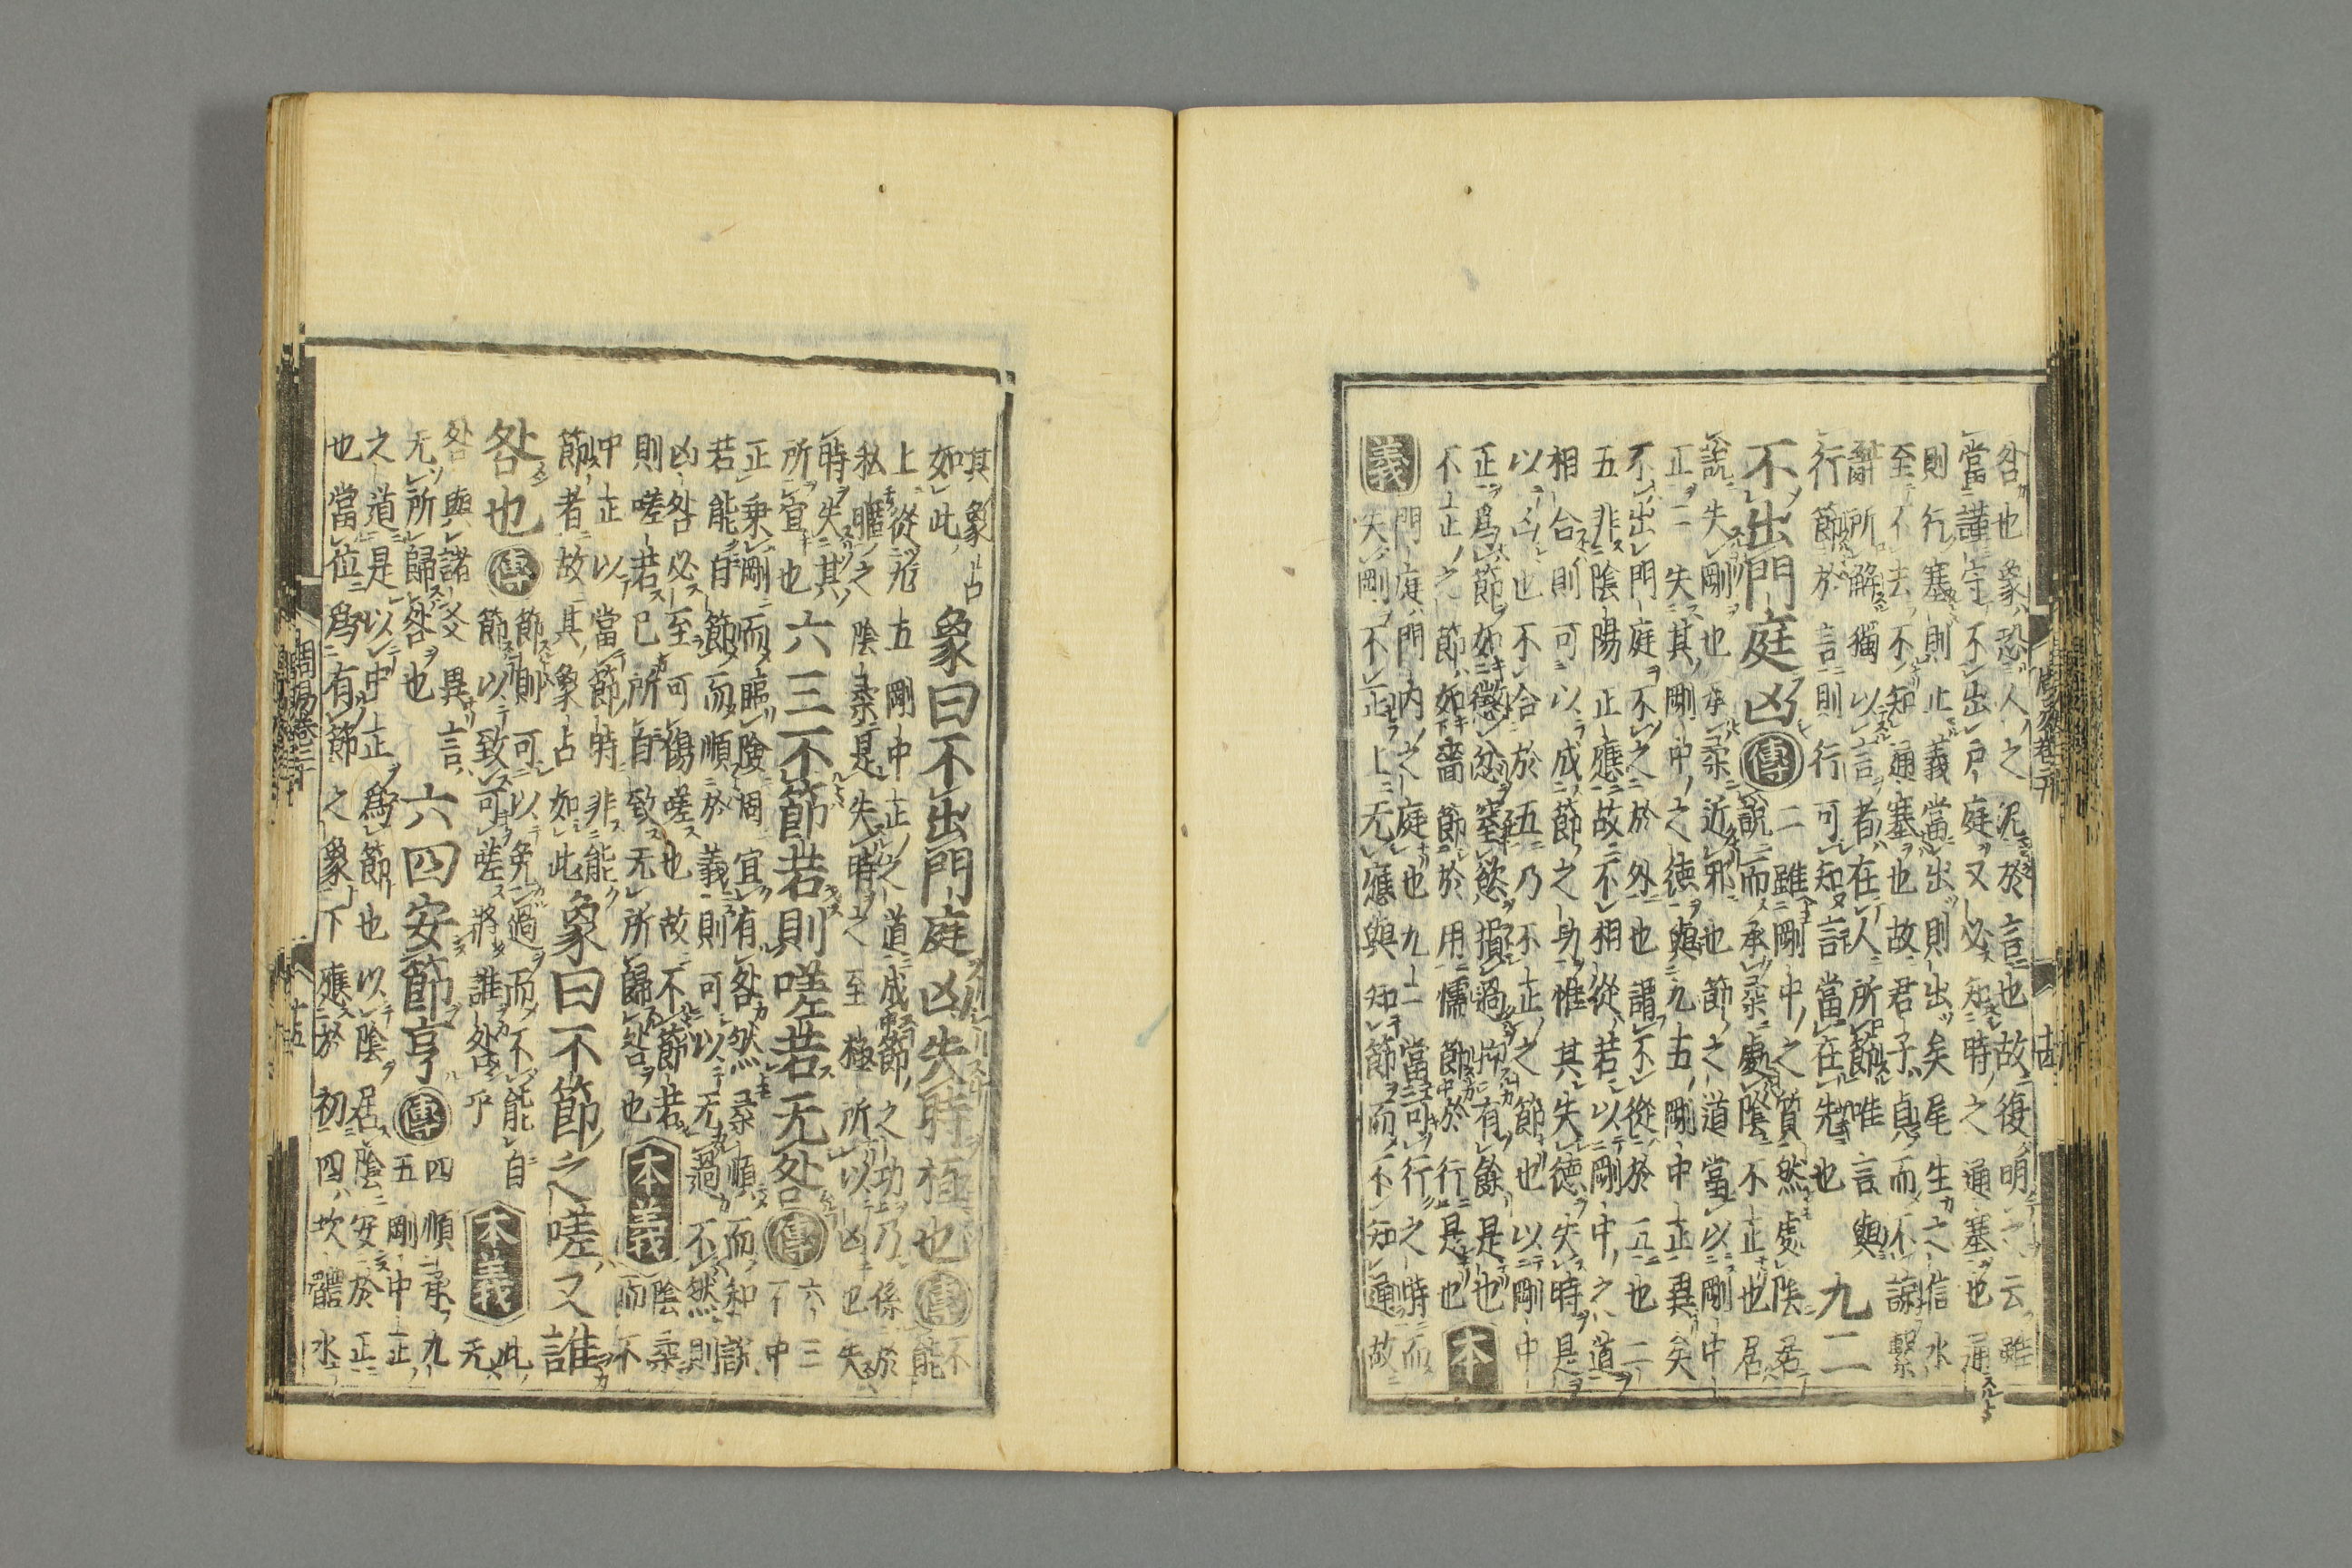 咎也象恐人之泥於言也故復明之云雖
當謹守不出戶庭又必知時之通塞也通
則行塞則止義當出則出矣尾生之信水
至不去不知通塞也故君子貞而不諒繫
辭所解獨以言者在人所節唯言與
行節於言則行可知言當在先也
九二
不出門庭凶
傳
二雖剛中之質然處陰居
說而承柔處陰不正也居
說失剛也承柔近邪也節之道當以剛中
正二失其剛中之德與九五剛中正異矣
不出門庭不之於外也謂不從於五也二
五非陰陽正應故不相從若以剛中之道
相合則可以成節之功惟其失德失時是
以凶也不合於五乃不正之節也以剛中
正爲節如懲忿窒慾損過抑有餘是也
不正之節如嗇節於用懦節於行是也
本
義
門庭門內之庭也九二當可行之時而
失剛不正上无應與知節而不知通故
其象占
如此
象曰不出門庭凶失時極也
傳
不
能
上從九五剛中正之道成節之功乃係於
私暱之陰柔是失時之至極所以凶也失
時失其
所宜也
六三不節若則嗟若无咎
傳
六三
不中
正乘剛而臨險固宜有咎然柔順而和說
若能自節而順於義則可以无過不然則
凶咎必至可傷嗟也故不節若
則嗟若己所自致无所歸咎也
本義
陰柔
而不
中正以當節時非能
節者故其象占如此
象曰不節之嗟又誰
咎也
傳
節則可以免過而不能自
節以致可嗟將誰咎乎
本義
此
无
咎與諸爻異言
无所歸咎也
六四安節亨
傳
四順承九
五剛中正
之道是以中正爲節也以陰居陰安於正
也當位爲有節之象下應於初四坎體水
十五